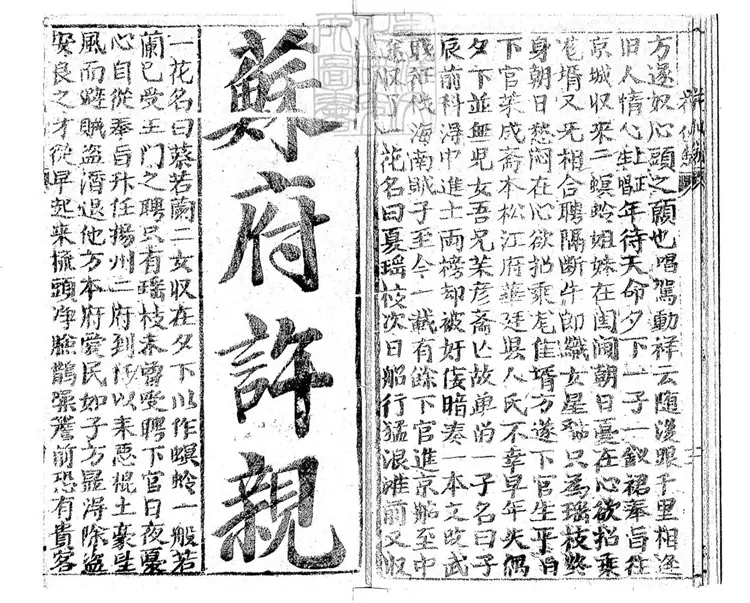 方遂奴心頭之願也唱駕動祥云随漫踪千里相逢
旧人情心年待天命夕下一子一釵裙奉旨往
京城収来二螟蛉姐妹在閨閫朝日憂在心欲招乘
龙壻又死相合聘隔断牛郎織女星只為瑶枝終
身朝日愁悶在心欲招乘龙佳壻方遂下官生平
下官葉成斎本松江府華廷县人氏不幸早年失偶
夕下並無児女吾兄葉彦斎亡故单尚一子名曰子
辰前科淂中進士両榜却被奸佞暗奏一本文政武
戝征伐海南賊子至今一載有餘下官進京船至中
途収了一花名曰夏瑶枝次日船行猛浪灘前又収
蘇府許親
一花名曰蔡若蘭二女収在夕下以作螟蛉一般若
蘭已受王門之聘只有瑶枝未曾受聘下官日夜憂
心自從奉旨陞任揚州二府到任以来悪棍土豪望
風而避賊盗潛退他方本府愛民如子方显淂除盗
安良之才從早起来梳頭净臉鵲噪簷前恐有貴客